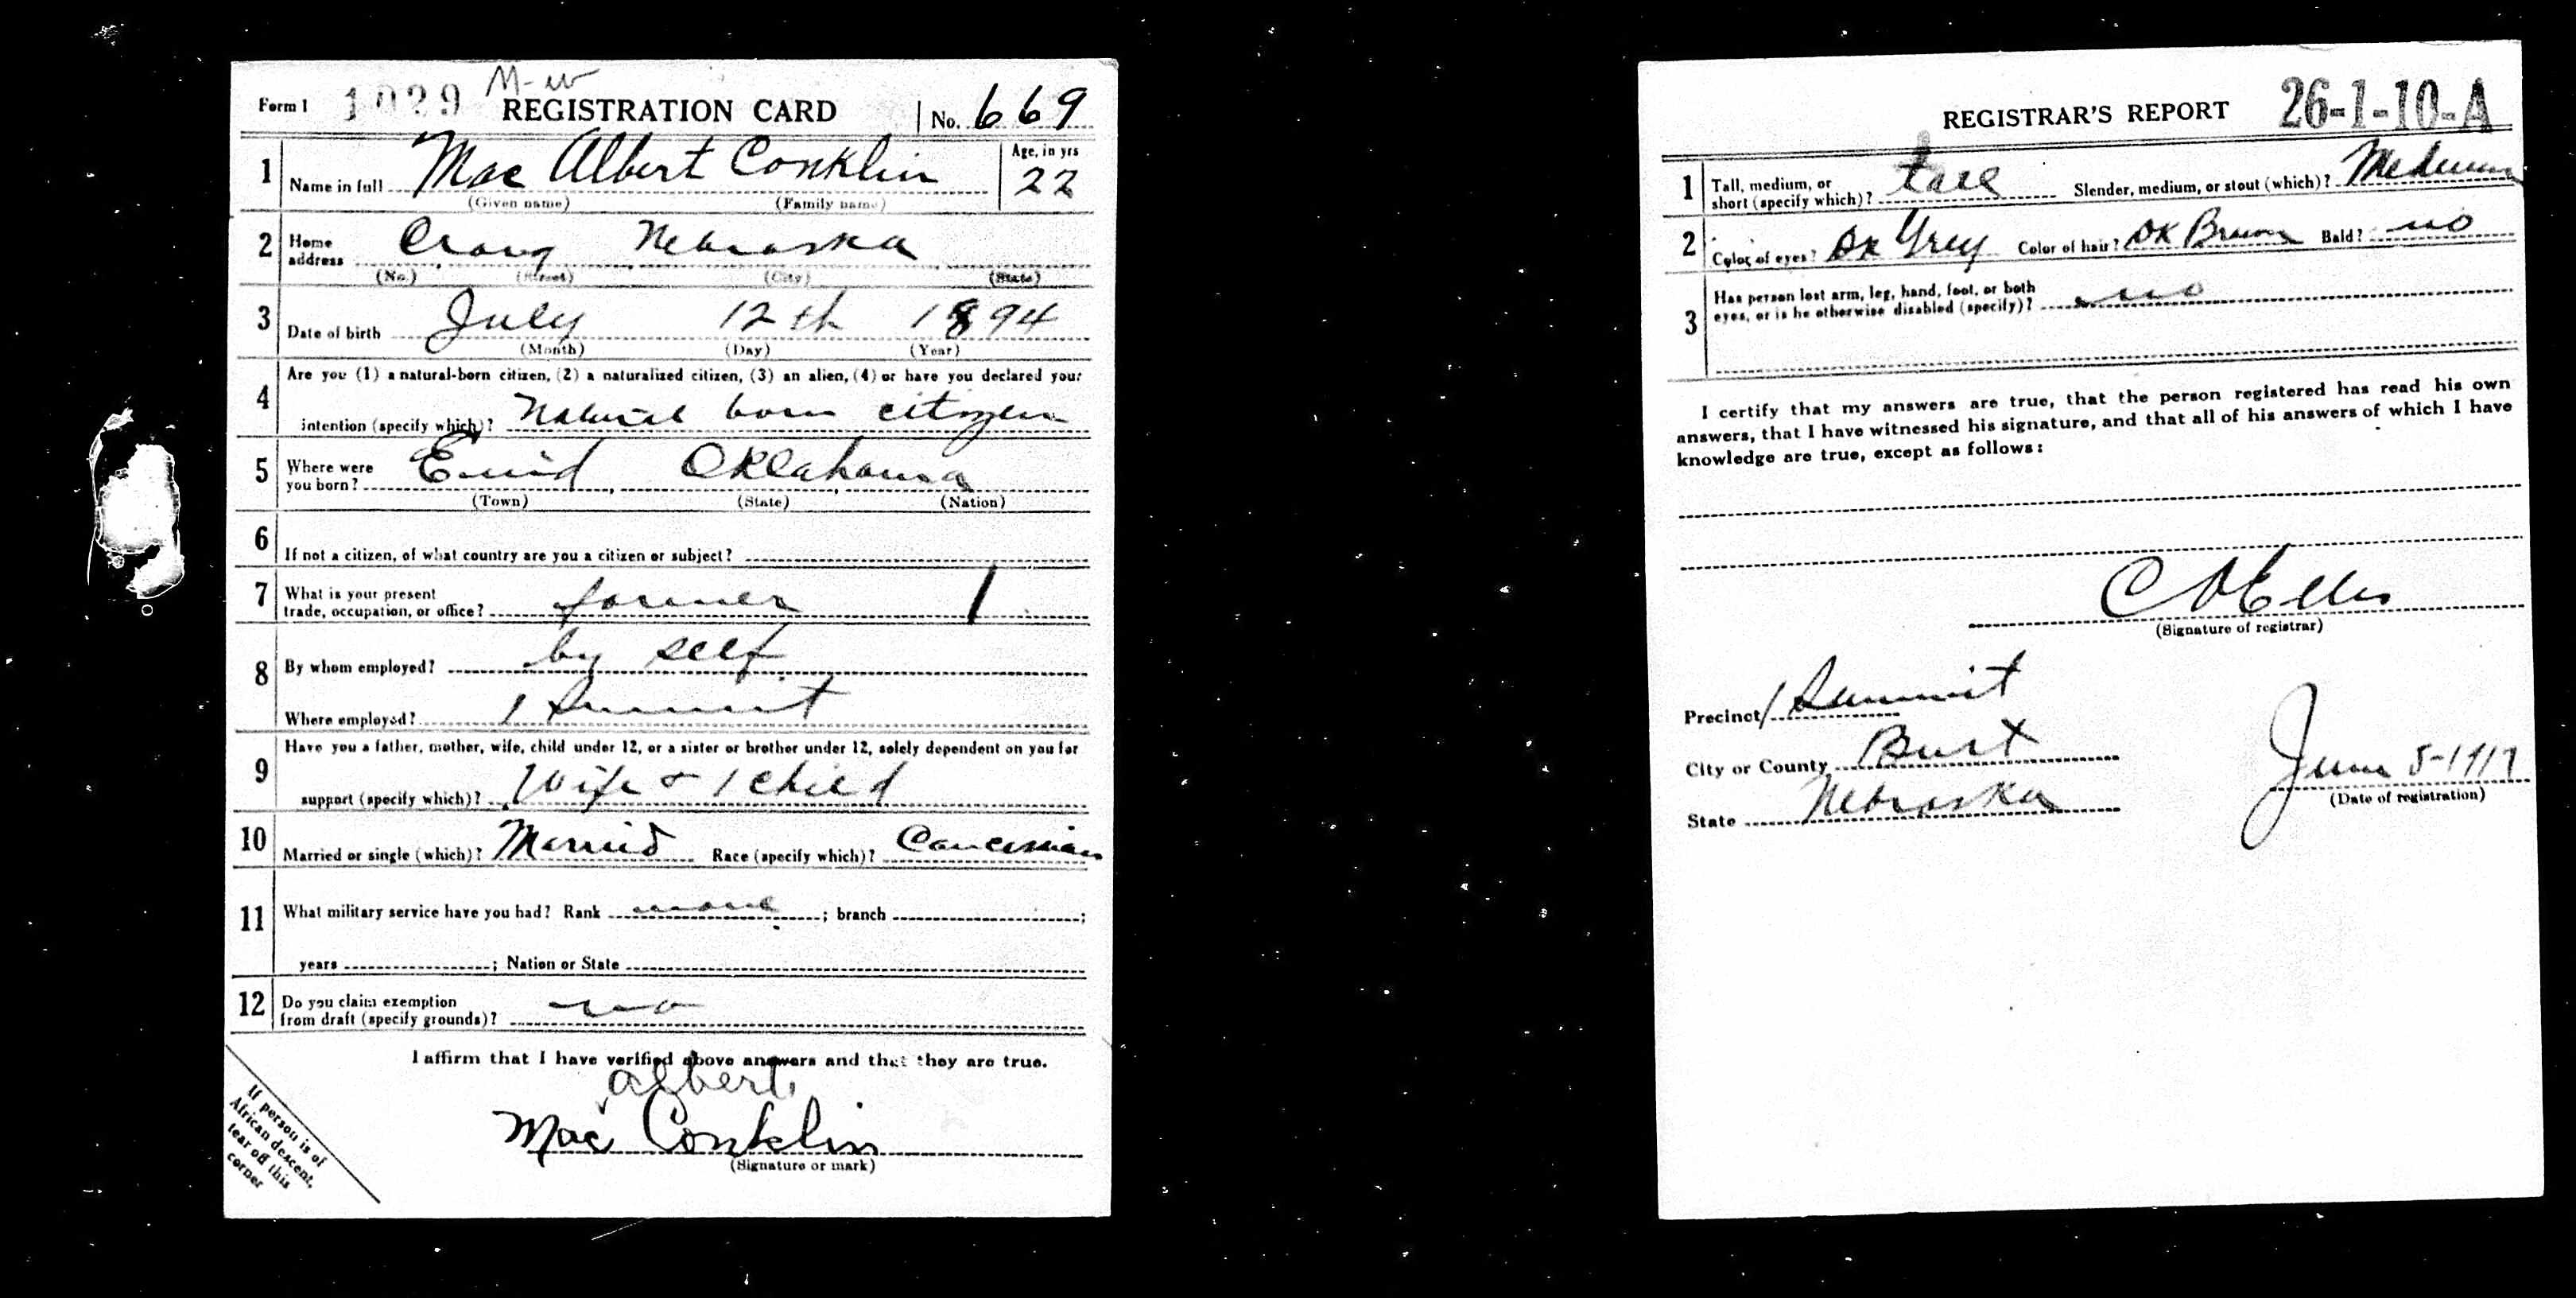 M-W
Form 1 1029 REGISTRATION CARD No. 669
1 Name in full Mac Albert Conklin Age, in yrs 22
(Given name) (Family name)
2 Home address Craig Nebraska
(No.) (Street) (City) (State)
3 Date of birth July 12th 1894
(Month) (Day) (Year)
4 Are you (1) a natural-born citizen, (2) a naturalized citizen, (3) an alien, (4) or have you declared your
intention (specify which)? Natural born citizen
5 Where were you born? Enid Oklahoma
(Town) (State) (Nation)
6 If not a citizen, of what country are you a citizen or subject?
7 What is your present trade, occupation, or office? farmer 1
8 By whom employed? by self
Where employed? 1 Summit
9 Have you a father, mother, wife, child under 12, or a sister or brother under 12, solely dependent on you for
support (specify which)? Wife + 1 child
10 Married or single (which)? Married Race (specify which)? Caucasian
11 What military service have you had? Rank none ; branch ;
years ; Nation or State
12 Do you claim exemption from draft (specify grounds)? no
I affirm that I have verified above answers and that they are true.
albert
Mac Conklin
(Signature or mark)
If person is of
African descent,
tear off this
corner
REGISTRAR'S REPORT 26-1-10-A
1 Tall, medium, or short (specify which)? tall Slender, medium, or stout (which)? Medium
2 Color of eyes? Dk Grey Color of hair? DK Brown Bald? no
3 Has person lost arm, leg, hand, foot, or both
eyes, or is he otherwise disabled (specify)? no
I certify that my answers are true, that the person registered has read his own
answers, that I have witnessed his signature, and that all of his answers of which I have
knowledge are true, except as follows:
C D Ellis
(Signature of registrar)
Precinct 1 Summit
City or County Burt
State Nebraska
June 5-1917
(Date of registration)